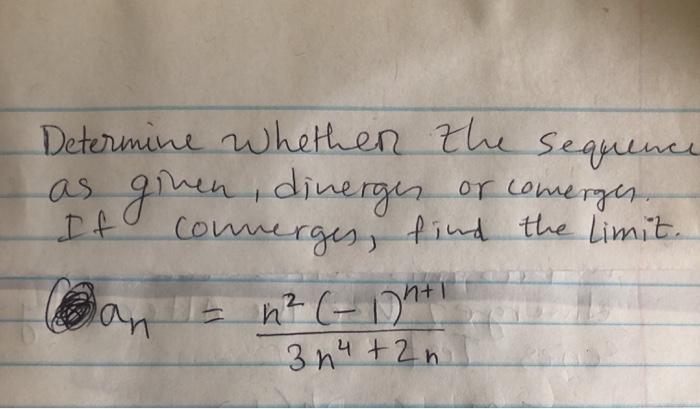 Determine whether the sequence
as given, diverges or converges.
If converges, find the limit.
an = n² (-1)ⁿ⁺¹ / 3n⁴ + 2n